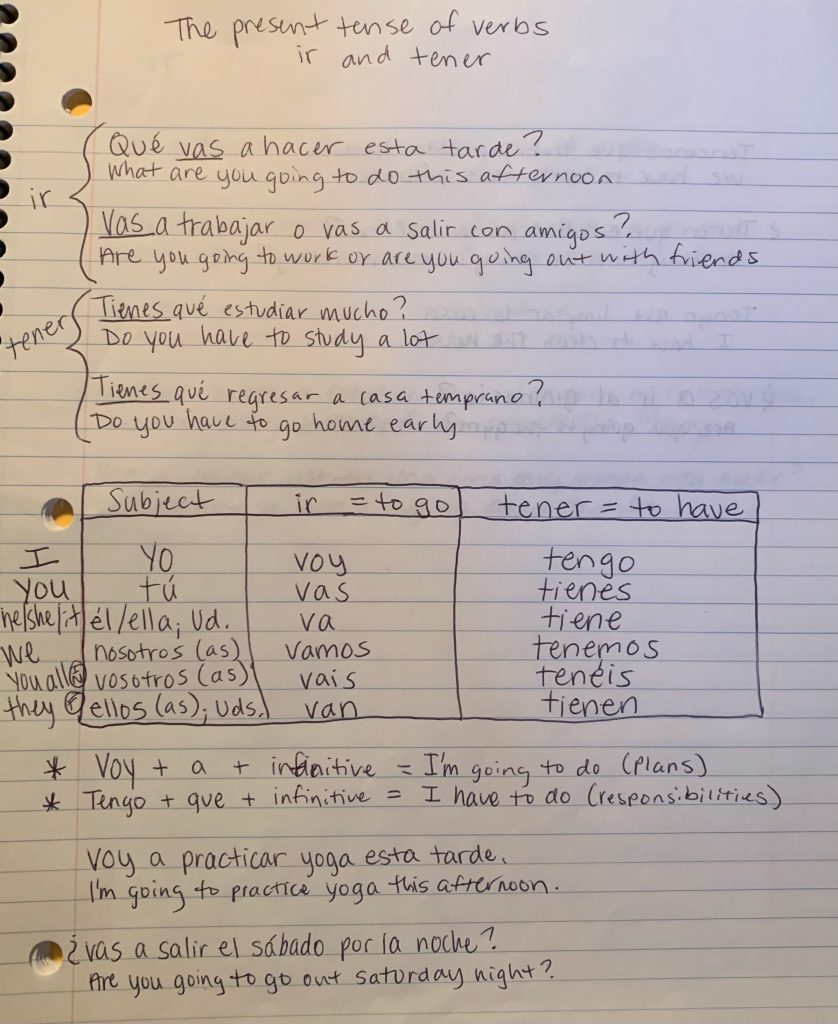 The present tense of verbs
ir and tener
Qué vas a hacer esta tarde?
What are you going to do this afternoon
ir
Vas a trabajar o vas a salir con amigos?
Are you going to work or are you going out with friends
tener
Tienes qué estudiar mucho?
Do you have to study a lot
Tienes qué regresar a casa temprano?
Do you have to go home early
Subject ir = to go tener = to have
I Yo voy tengo
you tú vas tienes
he/she/it él/ella; Ud. va tiene
we nosotros (as) vamos tenemos
you all vosotros (as) vais tenéis
they ellos (as); Uds. van tienen
* Voy + a + infinitive = I'm going to do (plans)
* Tengo + que + infinitive = I have to do (responsibilities)
Voy a practicar yoga esta tarde.
I'm going to practice yoga this afternoon.
¿vas a salir el sábado por la noche?
Are you going to go out saturday night?